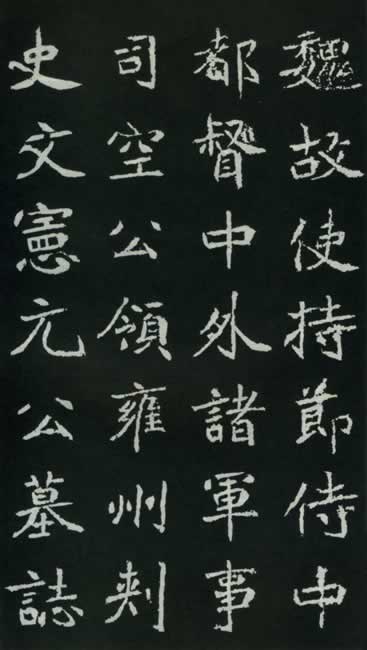 魏故使持節侍中
都督中外諸軍事
司空公領雍州刾
史文憲元公墓誌